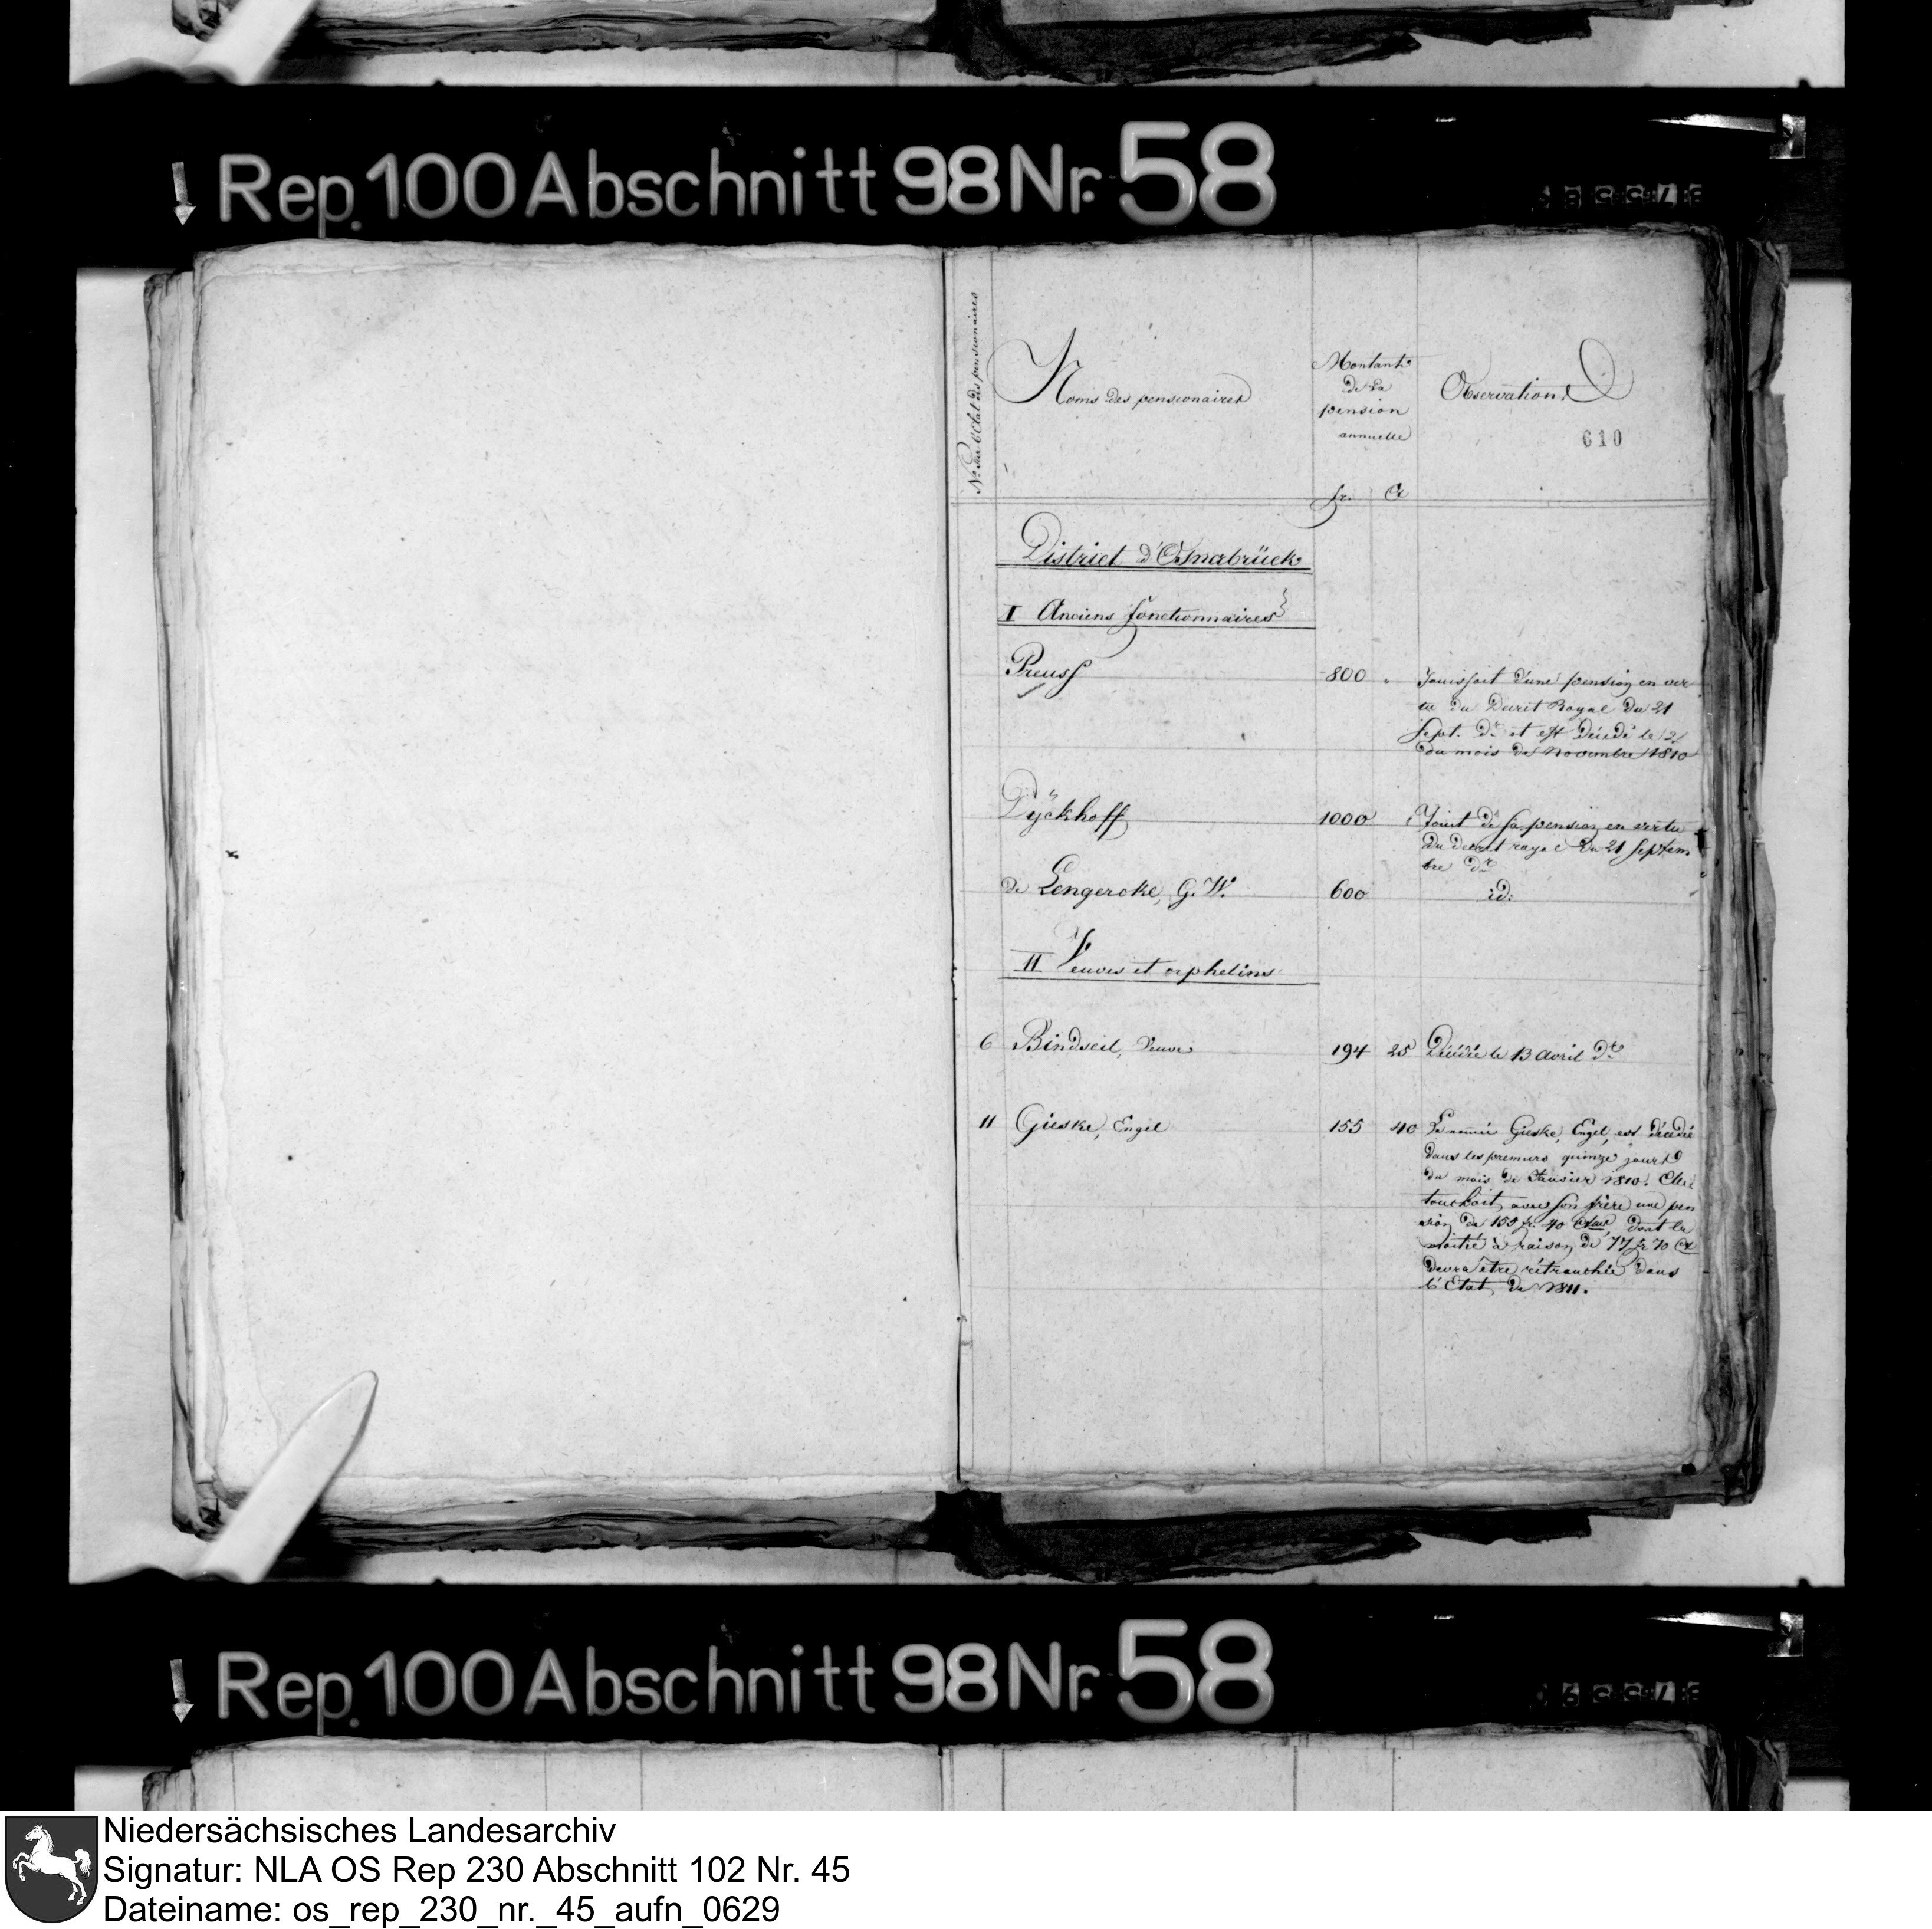 Rep. 100 Abschnitt 98 Nr. 58
No. sur l'Etat des pensionaires
Noms des pensionaires
Montant
de la
pension
annuelle
Observations
610
fr. Ct
District d'Osnabrück
I Anciens fonctionnaires
Preuss 800 " Jouissait d'une pension en ver
tu du Decrèt Royal du 21
Sept. dr et est décédé le
du mois de Novembre 1810
Dÿckhoff 1000 " Jouit de sa pension en vertu
du decret royal du 21 Septem
bre dr
de Lengercke, G. W. 600 id:
II Veuves et orphelins
6 Bindseil, Veuve 194 25 Décédée le 13 avril dr
11 Gieske, Engel 155 40 La nommée Gieske, Engel, est décédée
dans les premiers quinze jours
du mois de Janvier 1810. Elle
touchait avec son frère une pen
sion de 155 fr. 40 Ctms, dont la
moitié à raison de 77 fr 70 Ct
devra être retranchée dans
l'Etat de 1811.
Rep. 100 Abschnitt 98 Nr. 58
Niedersächsisches Landesarchiv
Signatur: NLA OS Rep 230 Abschnitt 102 Nr. 45
Dateiname: os_rep_230_nr._45_aufn_0629